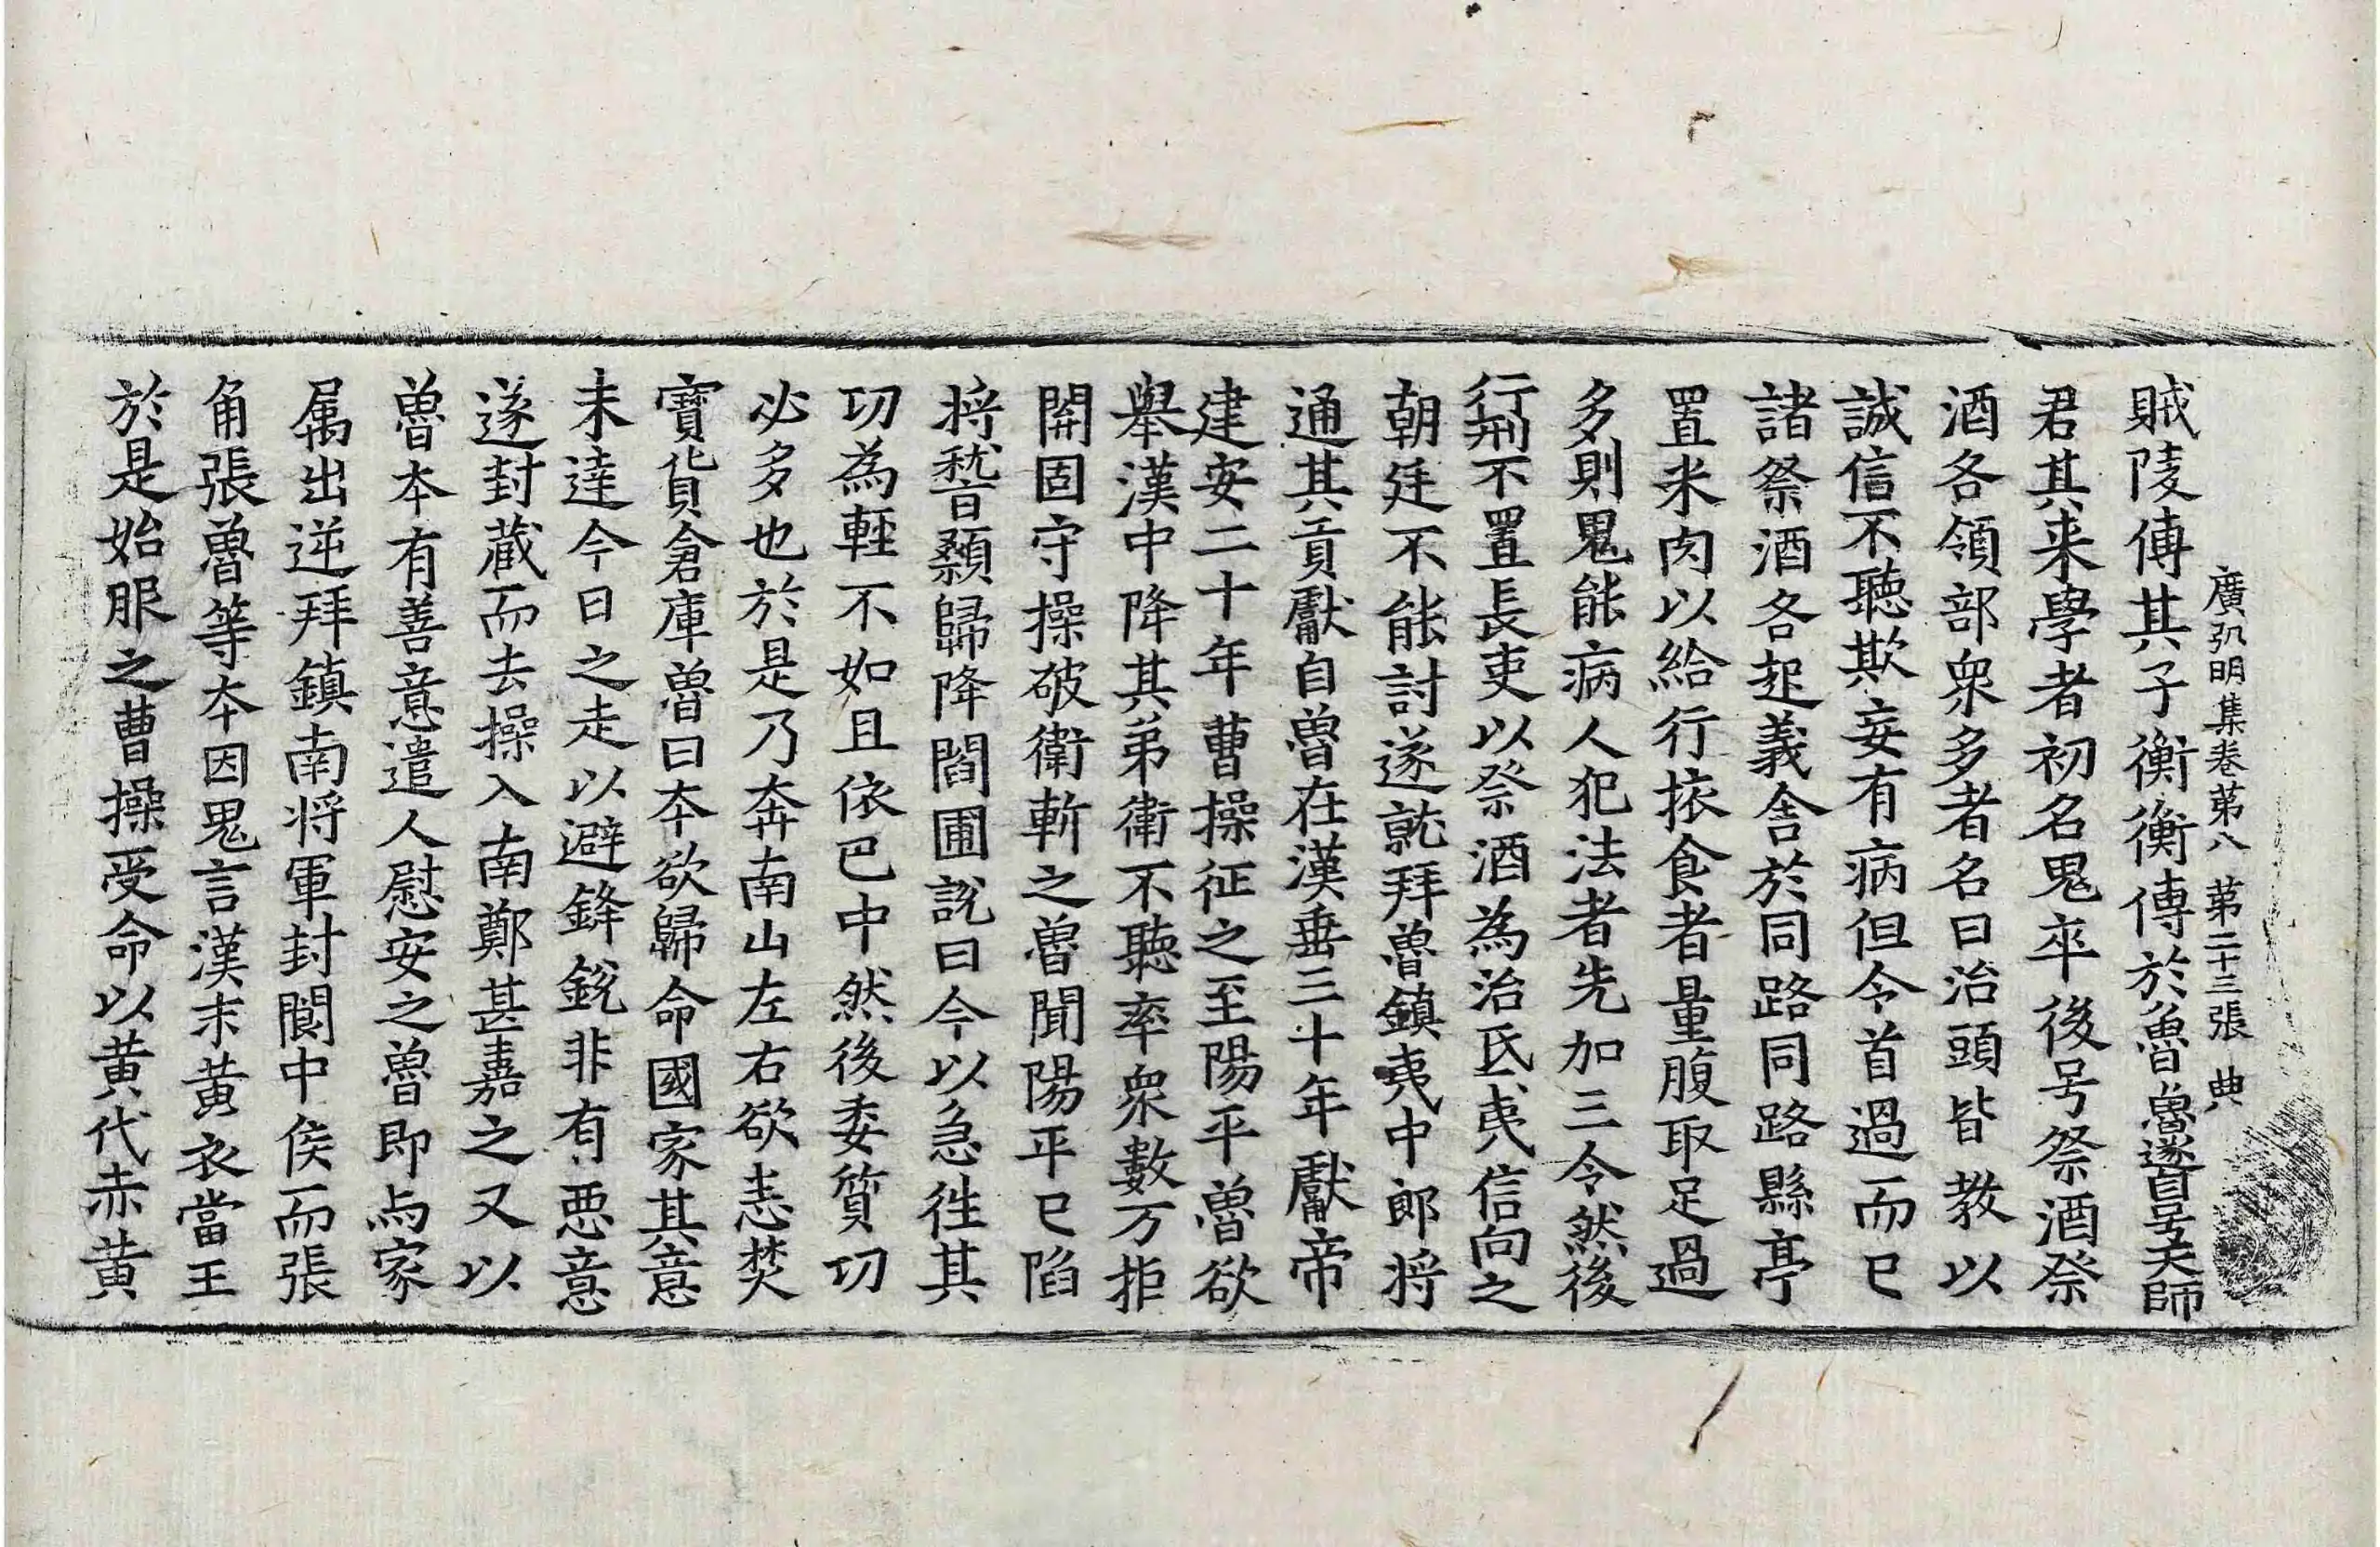 廣弘明集卷第八 第二十三張 典
賊陵傳其子衡衡傳於魯魯遂自号天師
君其来學者初名鬼卒後号祭酒祭
酒各領部衆多者名曰治頭皆教以
誠信不聽欺妄有病但令首過而已
諸祭酒各起義舍於同路同路縣亭
置米肉以給行挔食者量腹取足過
多則鬼能病人犯法者先加三令然後
行刑不置長吏以祭酒為治民夷信向之
朝廷不能討遂就拜魯鎮夷中郎将
通其貢獻自魯在漢垂三十年獻帝
建安二十年曹操征之至陽平魯欲
舉漢中降其弟衛不聽率衆數万拒
開固守操破衛斬之魯聞陽平已陷
将嵆顙歸降閻圃說曰今以急往其
功為輕不如且依巴中然後委質功
必多也於是乃奔南山左右欲恚焚
寶貨倉庫魯曰本欲歸命國家其意
未達今日之走以避鋒銳非有惡意
遂封蔵而去操入南鄭甚嘉之又以
魯本有善意遣人慰安之魯即与家
属出逆拜鎮南将軍封閬中侯而張
角張魯等本因鬼言漢末黄衣當王
於是始服之曹操受命以黄代赤黄